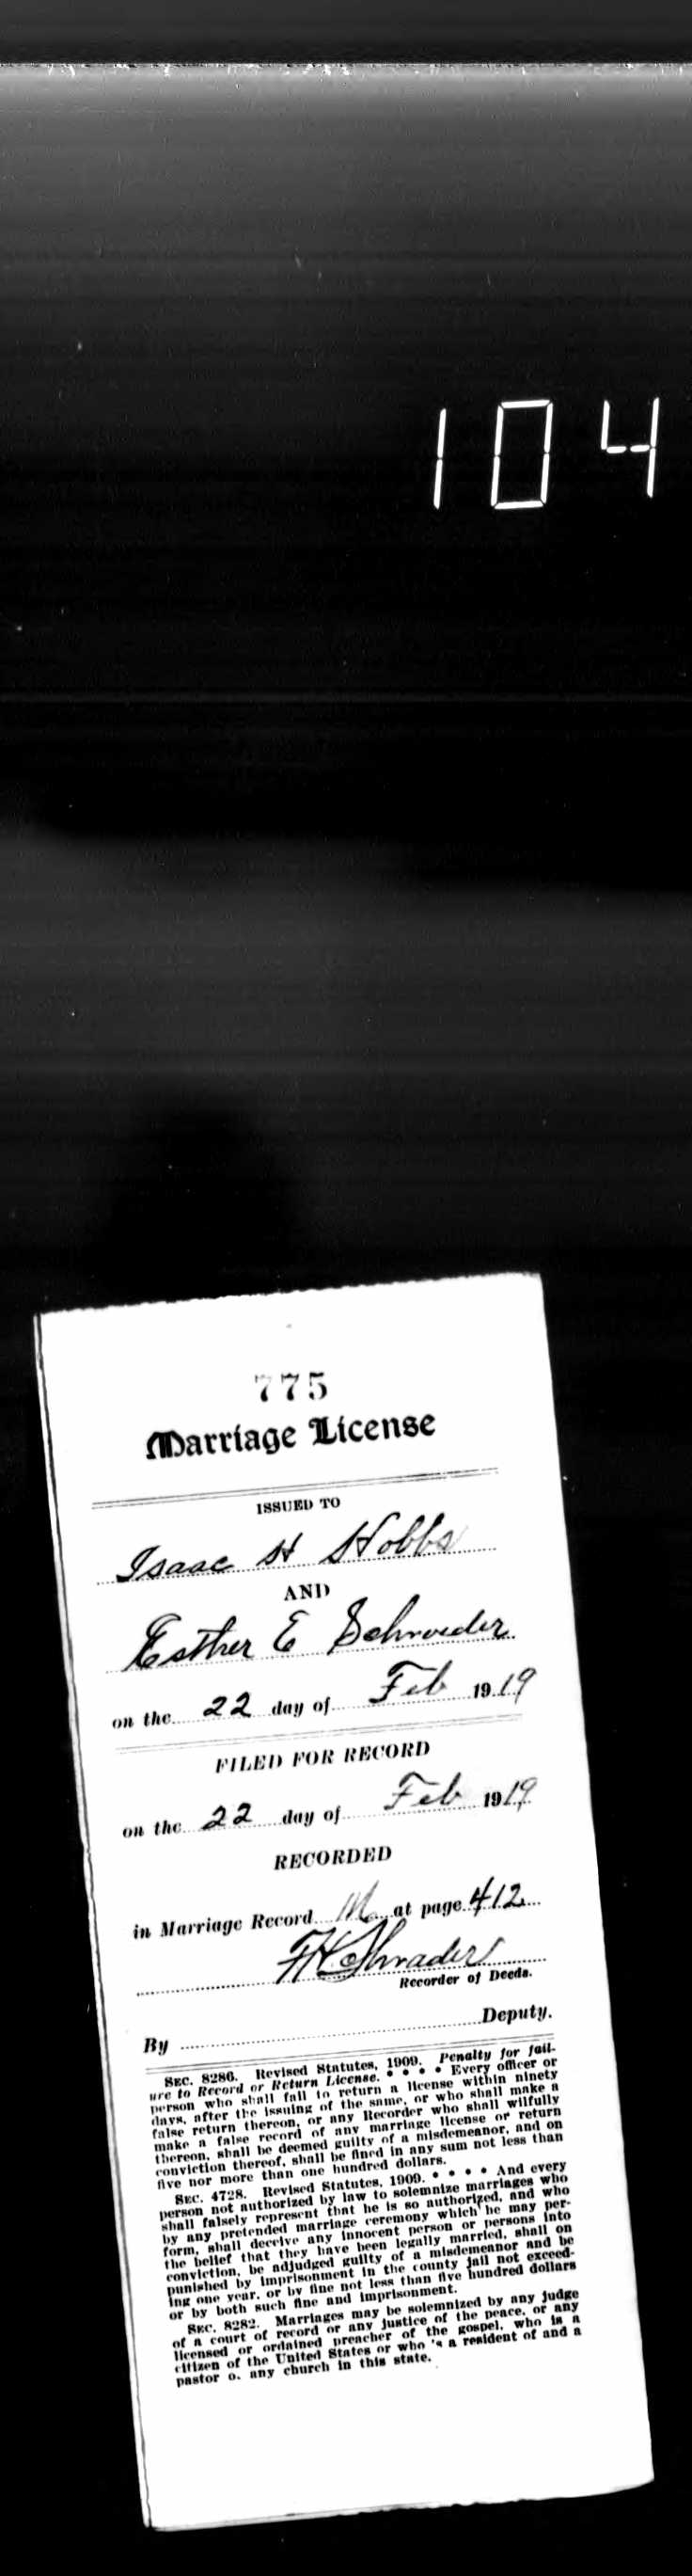 104
775
Marriage License
ISSUED TO
Isaac H Hobbs
AND
Esther E Schroeder
on the 22 day of Feb 1919
FILED FOR RECORD
on the 22 day of Feb 1919
RECORDED
in Marriage Record M at page 412
F H Shrader
Recorder of Deeds.
By Deputy.
SEC. 8286. Revised Statutes, 1909. Penalty for fail-
ure to Record or Return License. * * * * Every officer or
person who shall fail to return a license within ninety
days, after the issuing of the same, or who shall make a
false return thereon, or any Recorder who shall wilfully
make a false record of any marriage license or return
thereon, shall be deemed guilty of a misdemeanor, and on
conviction thereof, shall be fined in any sum not less than
five nor more than one hundred dollars.
SEC. 4728. Revised Statutes, 1909. * * * * And every
person not authorized by law to solemnize marriages who
shall falsely represent that he is so authorized, and who
by any pretended marriage ceremony which he may per-
form, shall deceive any innocent person or persons into
the belief that they have been legally married, shall on
conviction, be adjudged guilty of a misdemeanor and be
punished by imprisonment in the county jail not exceed-
ing one year, or by fine not less than five hundred dollars
or by both such fine and imprisonment.
SEC. 8282. Marriages may be solemnized by any judge
of a court of record or any justice of the peace, or any
licensed or ordained preacher of the gospel, who is a
citizen of the United States or who 's a resident of and a
pastor o. any church in this state.